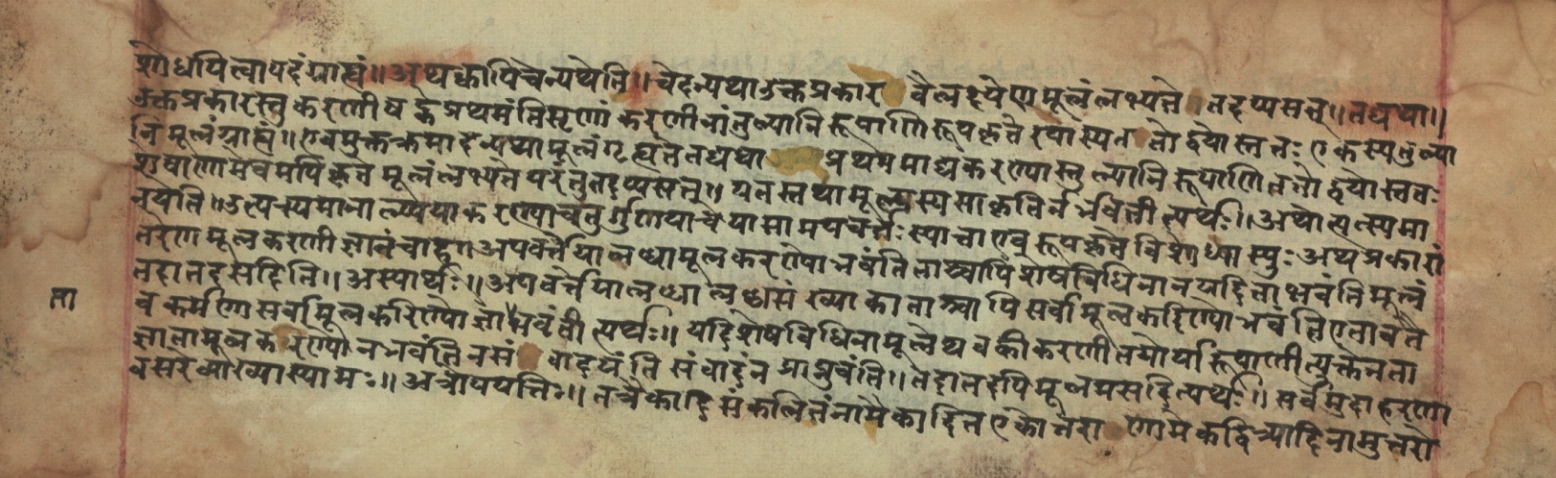 शोधयित्वा पदं ग्राह्यं॥ अथ क्वापि चेन्यथेति॥ चेदन्यथा उक्तप्रकार वैलक्ष्येण मूलं लभ्यते तदप्यसत्॥ तद्यथा॥
उक्तप्रकारस्तु करणीषट्के प्रथमं तिसृणां करणीनां तुल्यानि रूपाणि रूपकृते रपास्य ततो द्वयोस्ततः एकस्य तुल्या
नि मूलं ग्राह्यं॥ एवमुक्तक्रमादन्यथा मूलं गृह्यते तद्यथा प्रथममाद्यकरण्योस्तुल्यानि रूपाणि ततो द्वयोस्ततः
शेषाणामेवमपि कृते मूलं लभ्यते परंतु तदप्यसत्॥ यतस्तथा मूलस्य सा कृतिर्न भवतीत्यर्थः॥ अथोत्पत्स्यमा
नयेति॥ उत्पत्स्यमानाल्पया करण्या चतुर्गुणया चेयासामपवर्त्तः स्यात्ता एव रूपकृते विशोध्याः स्युः अथ प्रकारां
तरेण मूलकरणी ज्ञानं चाह॥ अपवर्त्ते या लब्धा मूलकरण्यो भवंति ताश्चापि शेषविधिना न यदि ता भवंति मूलं
तदा तदसदिति॥ अस्यार्थः॥ अपवर्त्ते या लब्धा लब्धसंख्याका ताश्चापि सर्वा मूलकरण्यो भवंति एतावते
व कर्मणा सर्वा मूलकरण्यो ज्ञाता भवंतीत्यर्थः॥ यदि शेषविधिना मूलेथ वकी करणी तयोर्या रूपाणीत्युक्तेन ता
ज्ञाता मूलकरण्यो न भवंति न सं वादयंति संवादं न प्राप्नुवंति॥ तदा तदपि मूलमसदित्यर्थः॥ सर्वमुदाहरणा
वसरे व्याख्यास्यामः॥ अत्रोपपत्तिः॥ तत्रैकादि संकलितं नामैकादित एकोत्तरा णामेकद्वित्र्यादिनामुत्तरो